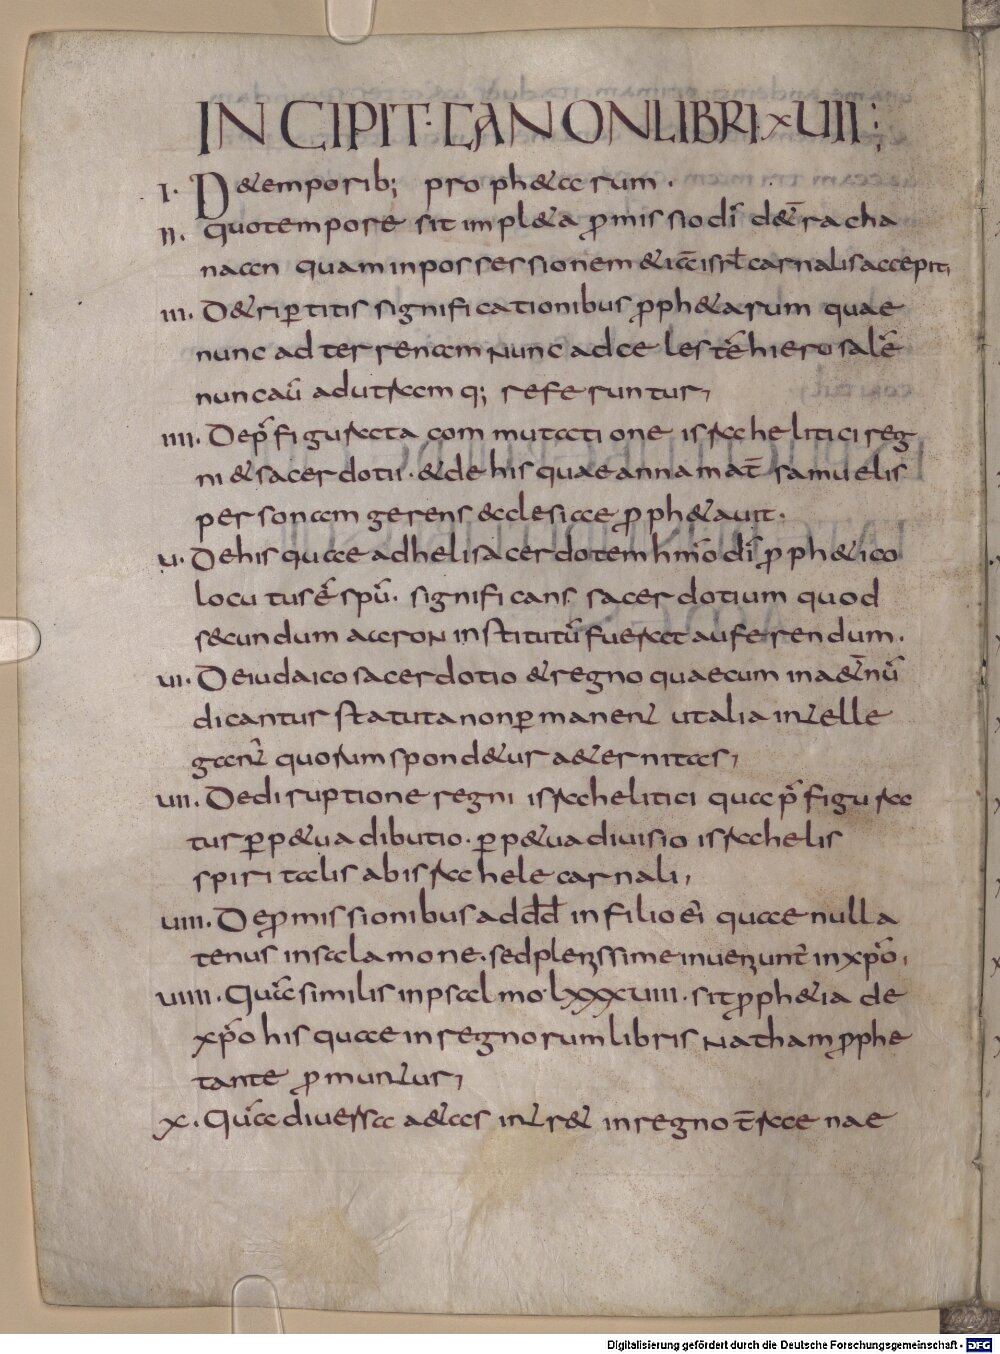 INCIPIT·CANON LIBRI XUII;
I. D&emporib; proph&arum.
II. quo tempore sit impl&a p̄missio dī de t̄ra cha
naan quam in possessionem &iā isrl̄ carnalis accepit,
III. De tripertitis significationibus p̄ph&arum quae
nunc ad terrenam nunc ad caelestē hierosalē
nunc aū ad utramq; referuntur,
IIII. De p̄figurata commutatione israhelitici reg
ni & sacerdotii. & de his quae anna mat̄ samuelis
personam gerens ecclesiae p̄ph&auit.
U. De his quae ad heli sacerdotem hm̄o dī p̄ph&ico
locutus ē spū. significans sacerdotium quod
secundum aaron institutū fuerat auferendum.
UI. De iudaico sacerdotio & regno quae cum in a&ernū
dicantur statuta non p̱manent ut alia intelle
gant̄ quorum spond&ur a&ernitas,
UII. De diruptione regni israhelitici qua p̄figura
tur p̱p&ua dibutio. p̱p&ua diuisio israhelis
spiritalis ab israhele carnali,
UIII. De p̄missionibus ad dd̄ in filio ei quae nulla
tenus in salamone. sed plenissime inueniunt̄ in xp̄o,
UIIII. Quā similis in psalmo·LXXXUIII. sit p̄ph&ia de
xp̄o his quae in regnorum libris natham p̄phe
tante p̄muntur,
X. Quā diuersa a&as int̄ r& in regno t̄rae nae
Digitalisierung gefördert durch die Deutsche Forschungsgemeinschaft - DFG